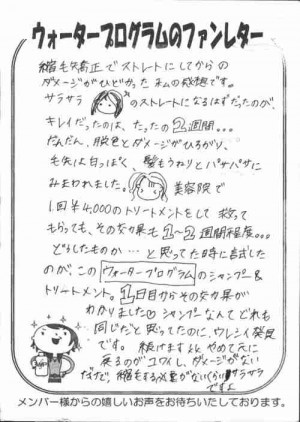 ウォータープログラムのファンレター
縮毛矯正でストレートにしてからの
ダメージがひどかった私の感想です。
サラサラ のストレートになるはずだったのが、
キレイだったのは、たったの2週間…
だんだん、脱色とダメージがひろがり、
毛先は白っぽく、髪もうねりとパサパサに
みまわれました。 美容院で
1回¥4,000のトリートメントをして
もらっても、その効果も1~2週間程度…
どうしたものか…と思ってた時に試した
のが、このウォータープログラムのシャンプー&
トリートメント。1日目からその効果が
わかりました♡シャンプーなんてどれも
同じだと思ってたのに、ウレシイ発見
です。続けますよ やめて元に
戻るのがコワイし、ダメージがない
だけで、縮毛する必要がないくらいサラサラ
ですよ
メンバー様からの嬉しいお声をお待ちいたしております。